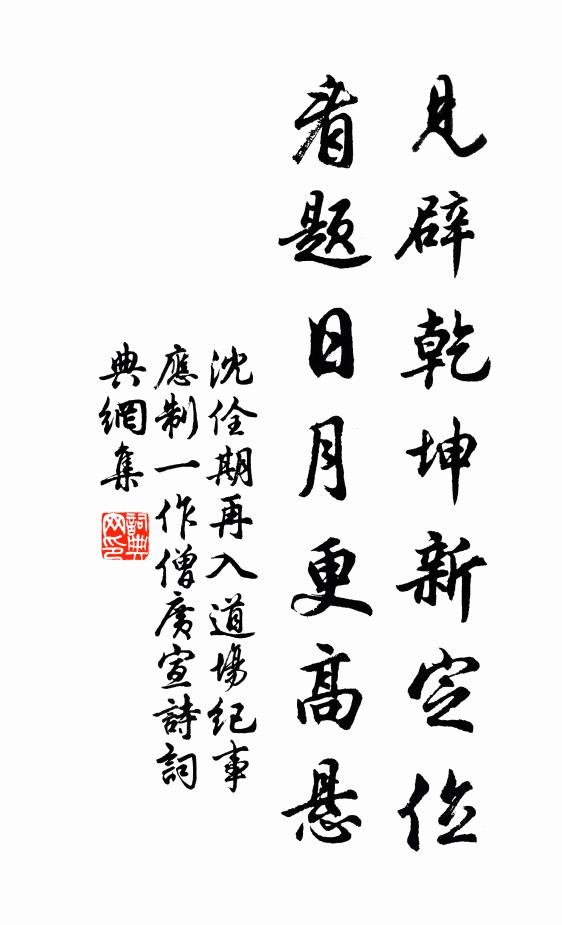 見辟乾坤新定位
看題日月更高懸
沈佺期再入道場紀事
應制一作僧廣宣詩詞
典網集
詞典
网印